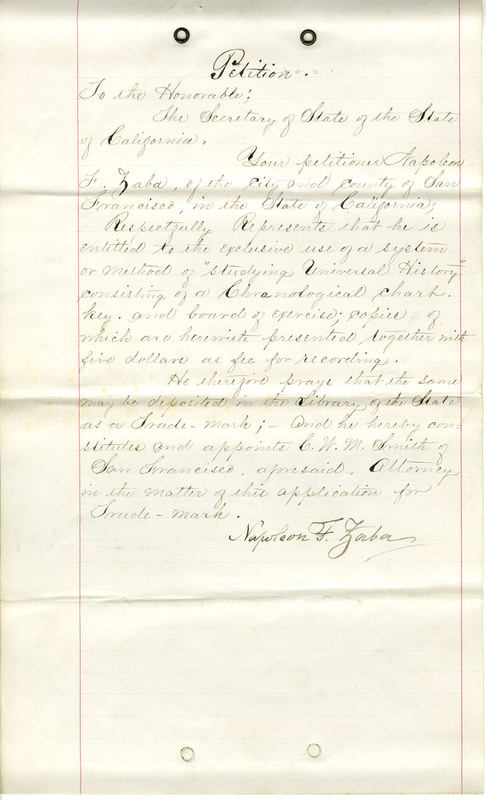 Petition.
To the Honorable;
The Secretary of State of the State
of California.
Your petitioner Napoleon
F. Zaba, of the City and County of San
Francisco, in the State of California;
Respectfully Represents that he is
entitled to the exclusive use of a system
or method of "studying Universal History"
consisting of a Chronological chart.
key. and board of exercise; copies of
which are herewith presented, together with
five dollars as fee for recording.
He therefore prays that the same
may be deposited in the Library of the State
as a Trade-mark; - and he hereby con=
stitutes and appoints C. W. M. Smith of
San Francisco, aforesaid. Attorney
in the matter of this application for
Trade-mark.
Napoleon F. Zaba